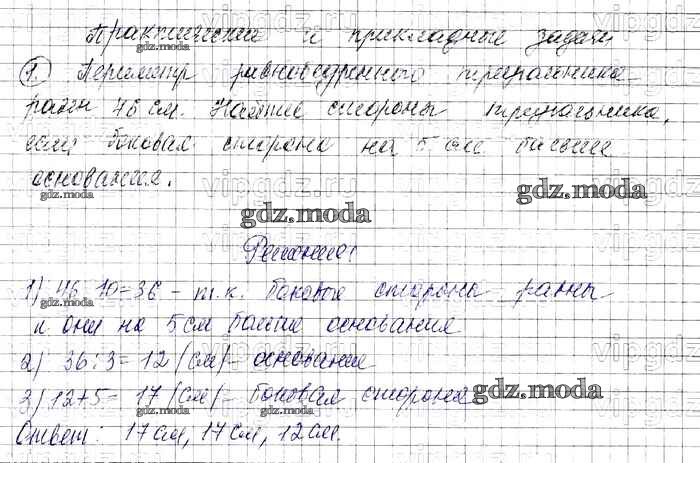 Практические и прикладные задачи
1. Периметр равнобедренного треугольника
равен 46 см. Найти стороны треугольника,
если боковая сторона на 5 см больше
основания.
Решение:
1) 46-10=36 - т.к. боковые стороны равны
и они на 5 см больше основания
2) 36:3=12 (см) - основание
3) 12+5= 17 (см) - боковая сторона
Ответ: 17 см, 17 см, 12 см.
gdz.moda
gdz.moda
gdz.moda
gdz.moda
gdz.moda
gdz.moda
gdz.moda
gdz.moda
gdz.moda
vipgdz.ru
vipgdz.ru
vipgdz.ru